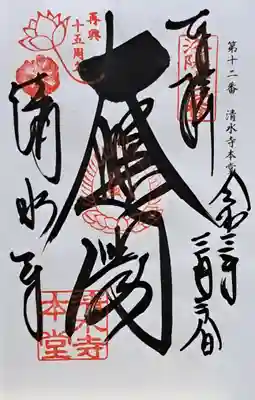 第十二番　清水寺本堂
奉拝
令和三年
再興
十五周年
大悲閣
清水寺
清水寺
本堂